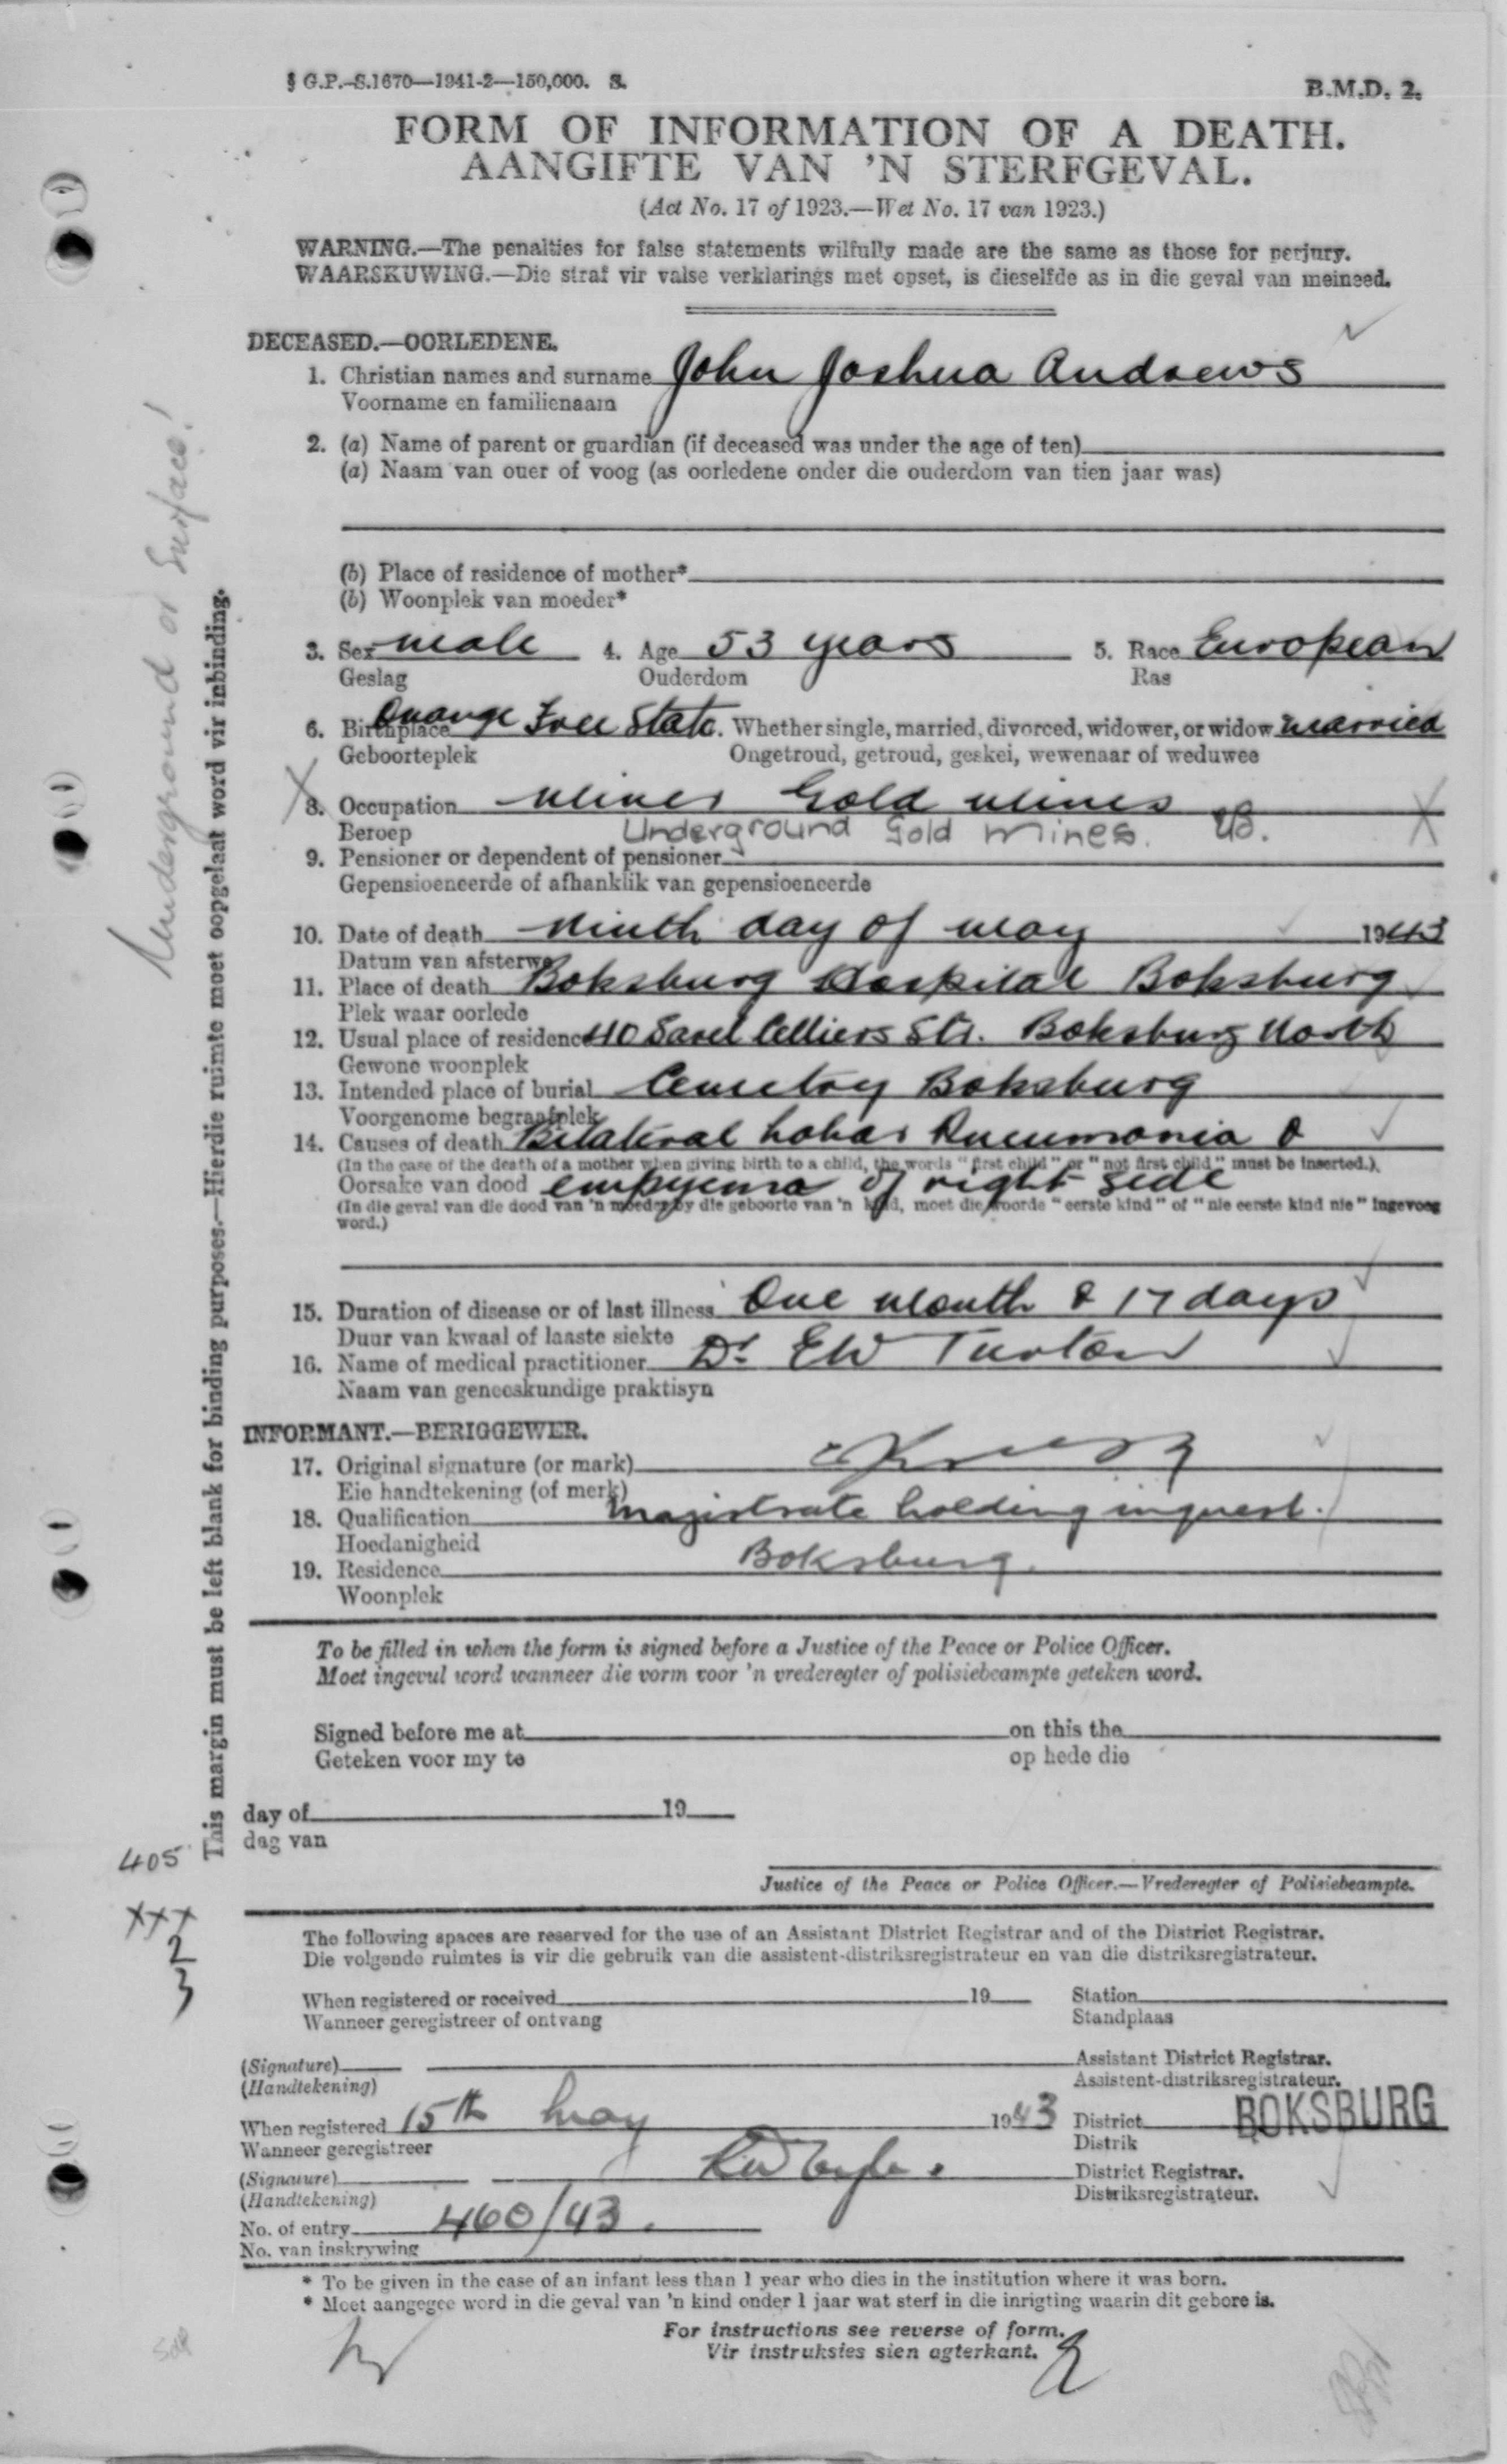 § G.P.-S.1670—1941-2—150,000. S.
B.M.D. 2.
FORM OF INFORMATION OF A DEATH.
AANGIFTE VAN 'N STERFGEVAL.
(Act No. 17 of 1923.—Wet No. 17 van 1923.)
WARNING.—The penalties for false statements wilfully made are the same as those for perjury.
WAARSKUWING.—Die straf vir valse verklarings met opset, is dieselfde as in die geval van meineed.
DECEASED.—OORLEDENE.
1. Christian names and surname John Joshua Andrews
Voorname en familienaam
2. (a) Name of parent or guardian (if deceased was under the age of ten)
(a) Naam van ouer of voog (as oorledene onder die ouderdom van tien jaar was)
(b) Place of residence of mother*
(b) Woonplek van moeder*
3. Sex male 4. Age 53 years 5. Race European
Geslag Ouderdom Ras
6. Birthplace Orange Free State. Whether single, married, divorced, widower, or widow married
Geboorteplek Ongetroud, getroud, geskei, wewenaar of weduwee
X 8. Occupation Miner Gold Mines
Beroep Underground Gold Mines. X
9. Pensioner or dependent of pensioner
Gepensioeneerde of afhanklik van gepensioeneerde
10. Date of death Ninth day of May 1943
Datum van afsterwe
11. Place of death Boksburg Hospital Boksburg
Plek waar oorlede
12. Usual place of residence 40 Sarel Celliers Str. Boksburg North
Gewone woonplek
13. Intended place of burial Cemetry Boksburg
Voorgenome begraafplek
14. Causes of death Bilateral Lobar Pneumonia &
(In the case of the death of a mother when giving birth to a child, the words "first child" or "not first child" must be inserted.)
Oorsake van dood empyema of right side
(In die geval van die dood van 'n moeder by die geboorte van 'n kind, moet die woorde "eerste kind" of "nie eerste kind nie" ingevoeg
word.)
15. Duration of disease or of last illness One month & 17 days
Duur van kwaal of laaste siekte
16. Name of medical practitioner Dr. E W Turton
Naam van geneeskundige praktisyn
INFORMANT.—BERIGGEWER.
17. Original signature (or mark)
Eie handtekening (of merk)
18. Qualification Magistrate holding inquest.
Hoedanigheid
19. Residence Boksburg.
Woonplek
To be filled in when the form is signed before a Justice of the Peace or Police Officer.
Moet ingevul word wanneer die vorm voor 'n vrederegter of polisiebeampte geteken word.
Signed before me at on this the
Geteken voor my te op hede die
day of 19
dag van
Justice of the Peace or Police Officer.—Vrederegter of Polisiebeampte.
The following spaces are reserved for the use of an Assistant District Registrar and of the District Registrar.
Die volgende ruimtes is vir die gebruik van die assistent-distriksregistrateur en van die distriksregistrateur.
When registered or received 19 Station
Wanneer geregistreer of ontvang Standplaas
(Signature) Assistant District Registrar.
(Handtekening) Assistent-distriksregistrateur.
When registered 15th May 1943 District BOKSBURG
Wanneer geregistreer Distrik
(Signature) District Registrar.
(Handtekening) Distriksregistrateur.
No. of entry 460/43.
No. van inskrywing
* To be given in the case of an infant less than 1 year who dies in the institution where it was born.
* Moet aangegee word in die geval van 'n kind onder 1 jaar wat sterf in die inrigting waarin dit gebore is.
For instructions see reverse of form.
Vir instruksies sien agterkant.
This margin must be left blank for binding purposes.—Hierdie ruimte moet oopgelaat word vir inbinding.
Underground or Surface!
405
XXX
2
3